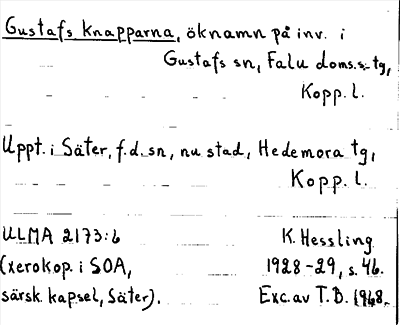 Gustafs knapparna, öknamn på inv. i
Gustafs sn, Falu doms.s. tg,
Kopp. l.
Uppt. i Säter, f.d. sn, nu stad, Hedemora tg,
Kopp. l.
ULMA 2173:6 K. Hessling
(xerokop. i SOA, 1928-29, s. 46.
särsk. kapsel, Säter). Exc. av T.B. 1968.